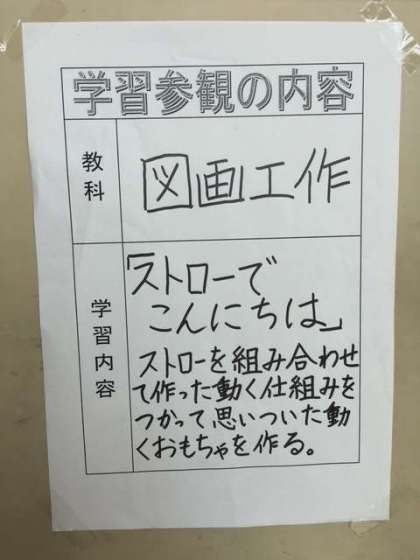 学習参観の内容
教科
図画工作
学習内容
「ストローで
こんにちは」
ストローを組み合わせ
て作った動く仕組みを
つかって思いついた動
くおもちゃを作る。